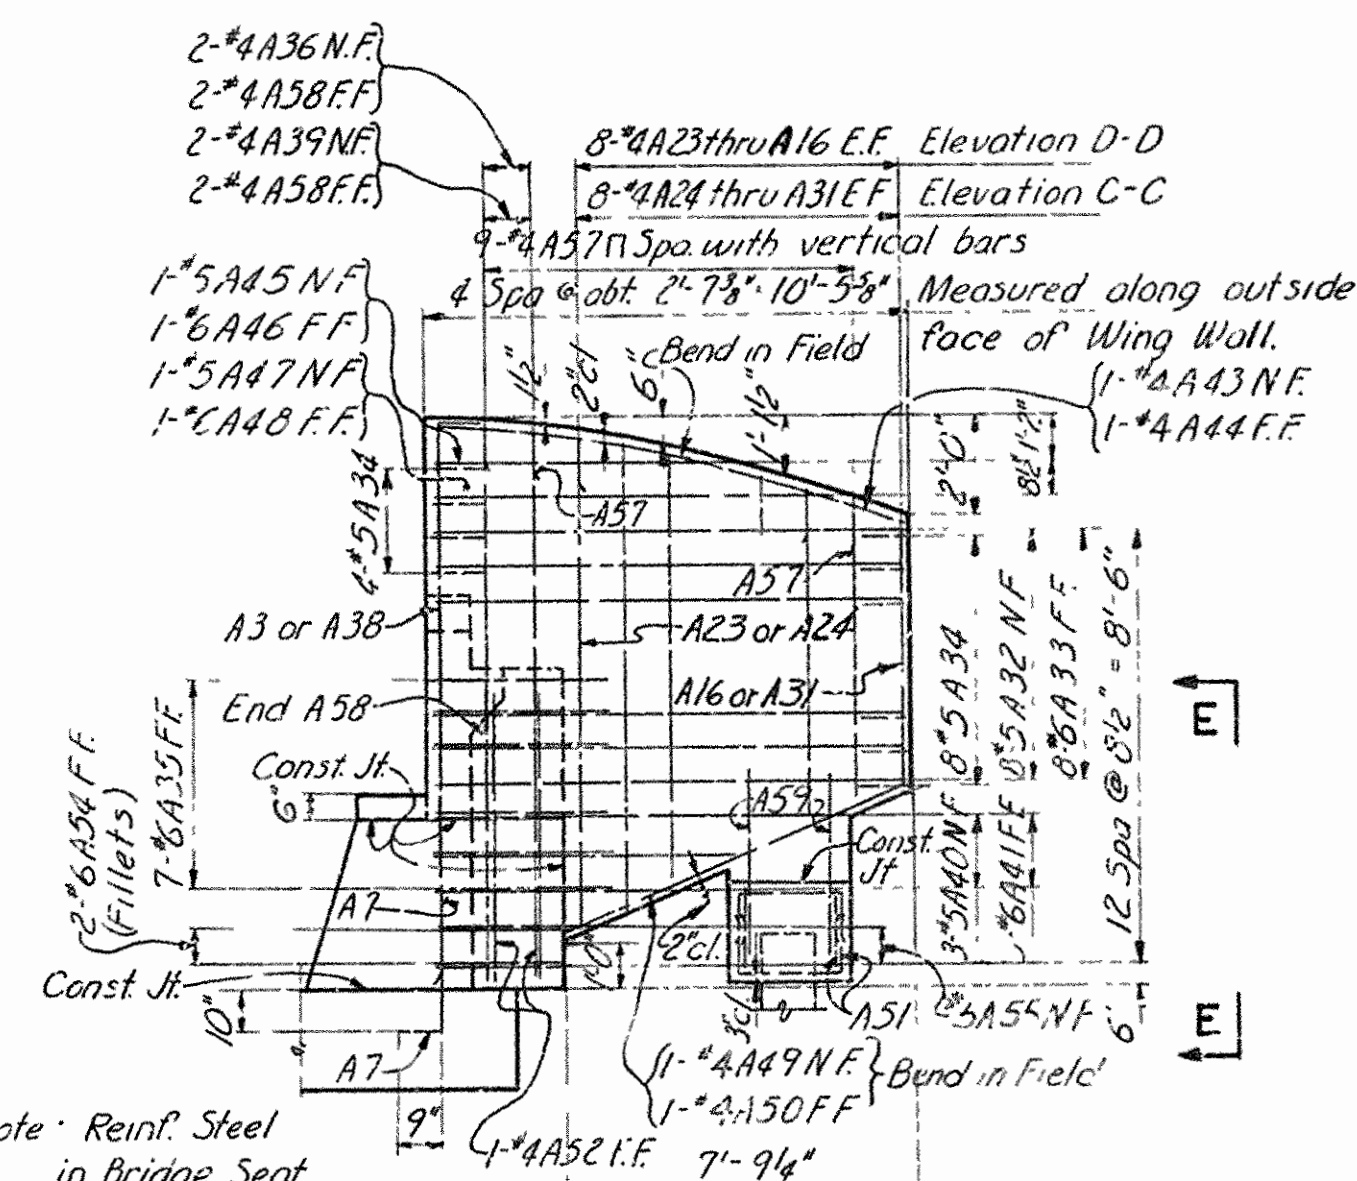 2-#4A36 N.F.
2-#4A58 F.F.
2-#4A39 N.F.
2-#4A58 F.F.
8-#4A23 thru A16 E.F. Elevation D-D
8-#4A24 thru A31 E F Elevation C-C
9-#4A57 Spa. with vertical bars
4 Spa @ abt. 2'-7 3/8" = 10'-5 5/8" Measured along outside
face of Wing Wall.
1-#5A45 N F
1-#6A46 F F
1-#5A47 N F
A48 F.F.
1 1/2"
2" cl
6"
Bend in Field
1'-1 1/2"
1-#4A43 N F.
1-#4A44 F.F.
2'-0"
8 1/2"
1'-2"
4-#5A34
A57
A57
A3 or A38
A23 or A24
A16 or A31
End A58
Const. Jt.
6"
2-#6A54 F F.
(Fillets)
7-#6A35 F F.
8-#5A34
8-#5A32 N F
8-#6A33 F F
12 Spa @ 8 1/2" = 8'-6"
E
A59
Const.
Jt
3-#5A40 N F
#6A41 F F
A7
2" cl.
1'-0"
Const. Jt.
10"
A7
3" cl
A51
N F
6"
E
1-#4A49 N F.
1-#4A50 F F
Bend in Field
9"
1-#4A52 F.F.
7'-9 1/4"
Reinf. Steel
in Bridge Seat